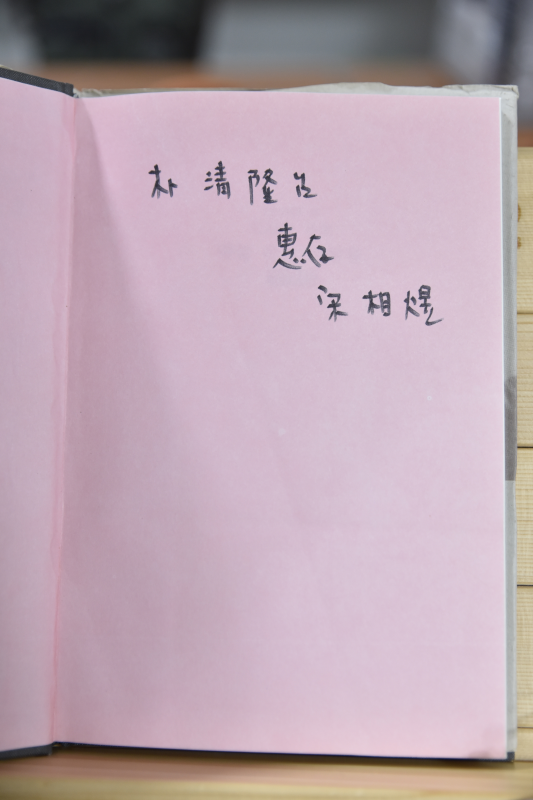 朴清隆兄
惠存
宋相煜